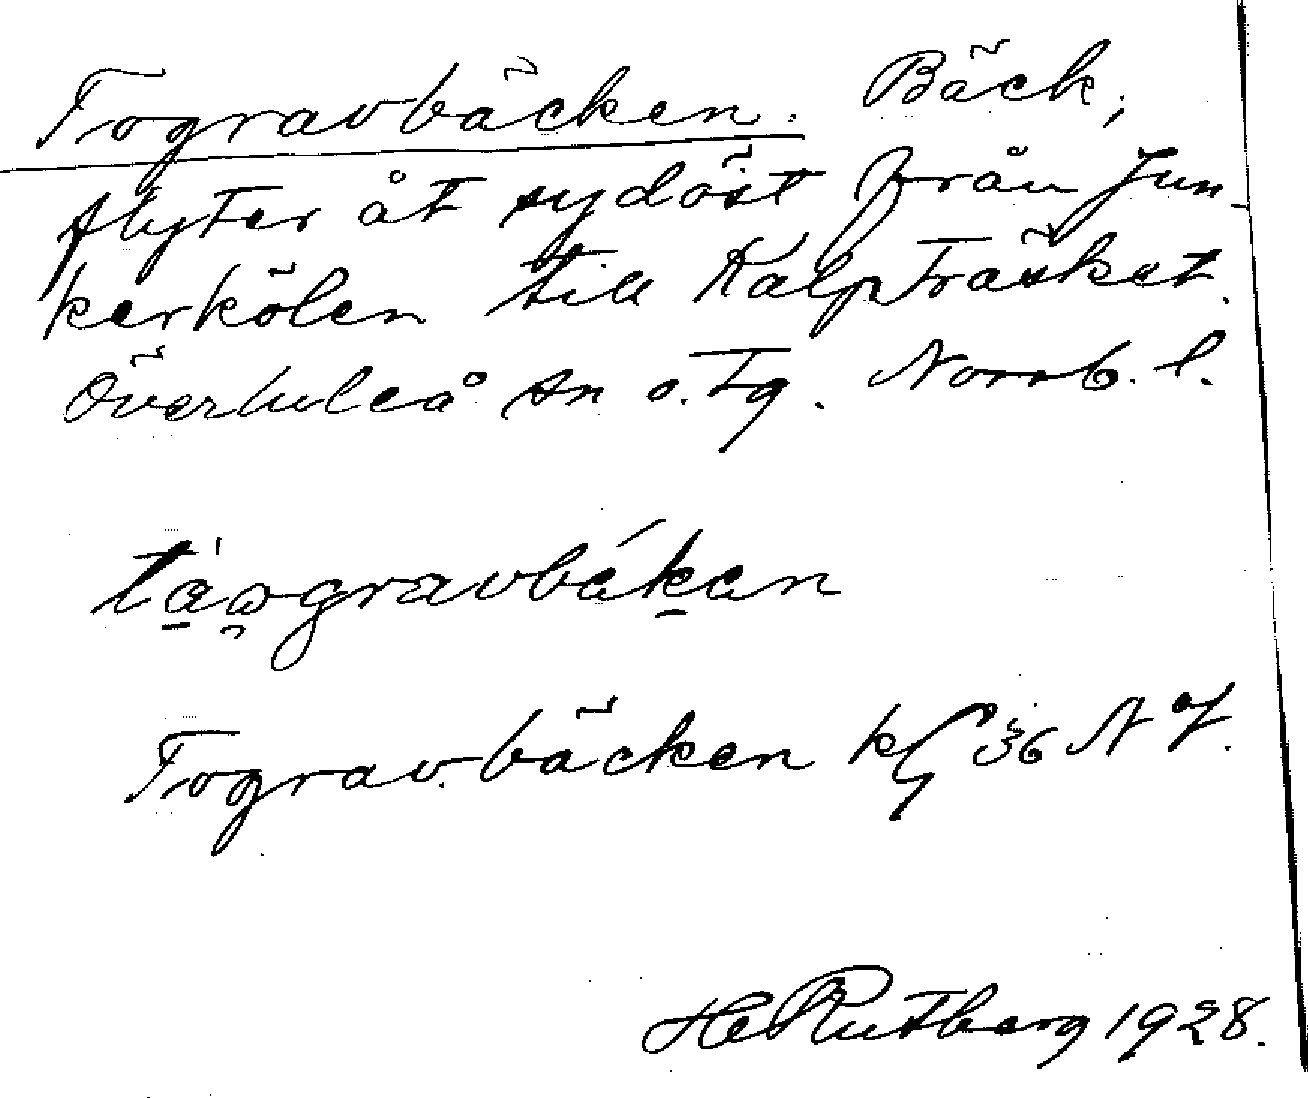 Togravbäcken. Bäck,
flyter åt sydöst från Jun-
kerkölen till Kalpträsket.
Överluleå sn o. tg. Norrb. l.
Togravbäcken kf 36 N V.
H Rutberg 1928.